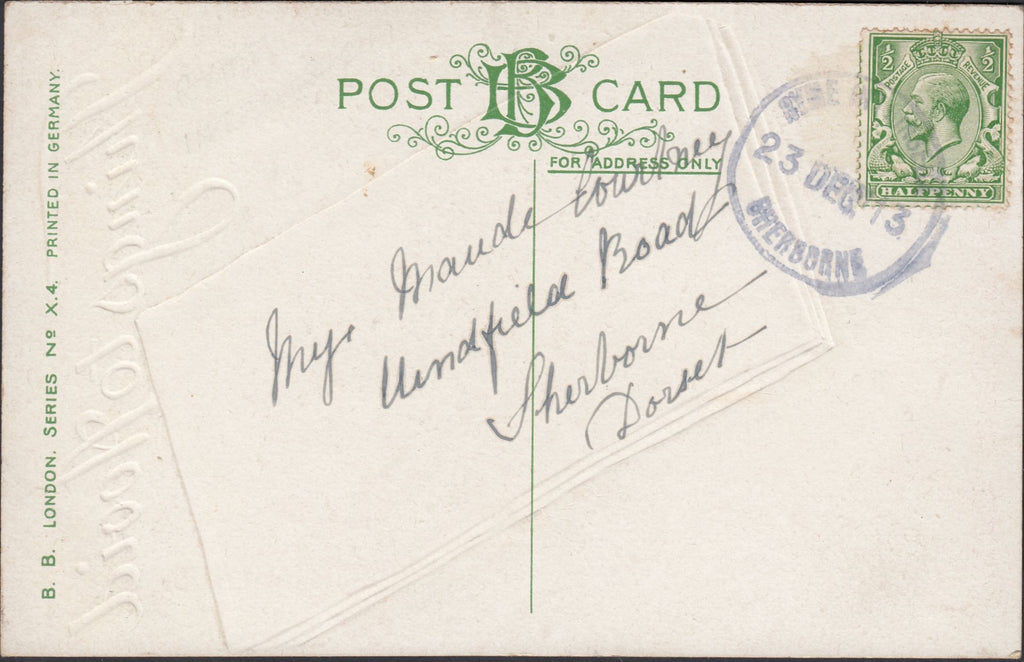 POST BB CARD
FOR ADDRESS ONLY
1/2 1/2
POSTAGE REVENUE
HALFPENNY
23 DEC 13
SHERBORNE
Maude Courtney
Road
Sherborne
Dorset
B. B. LONDON. SERIES Nº X.4. PRINTED IN GERMANY.